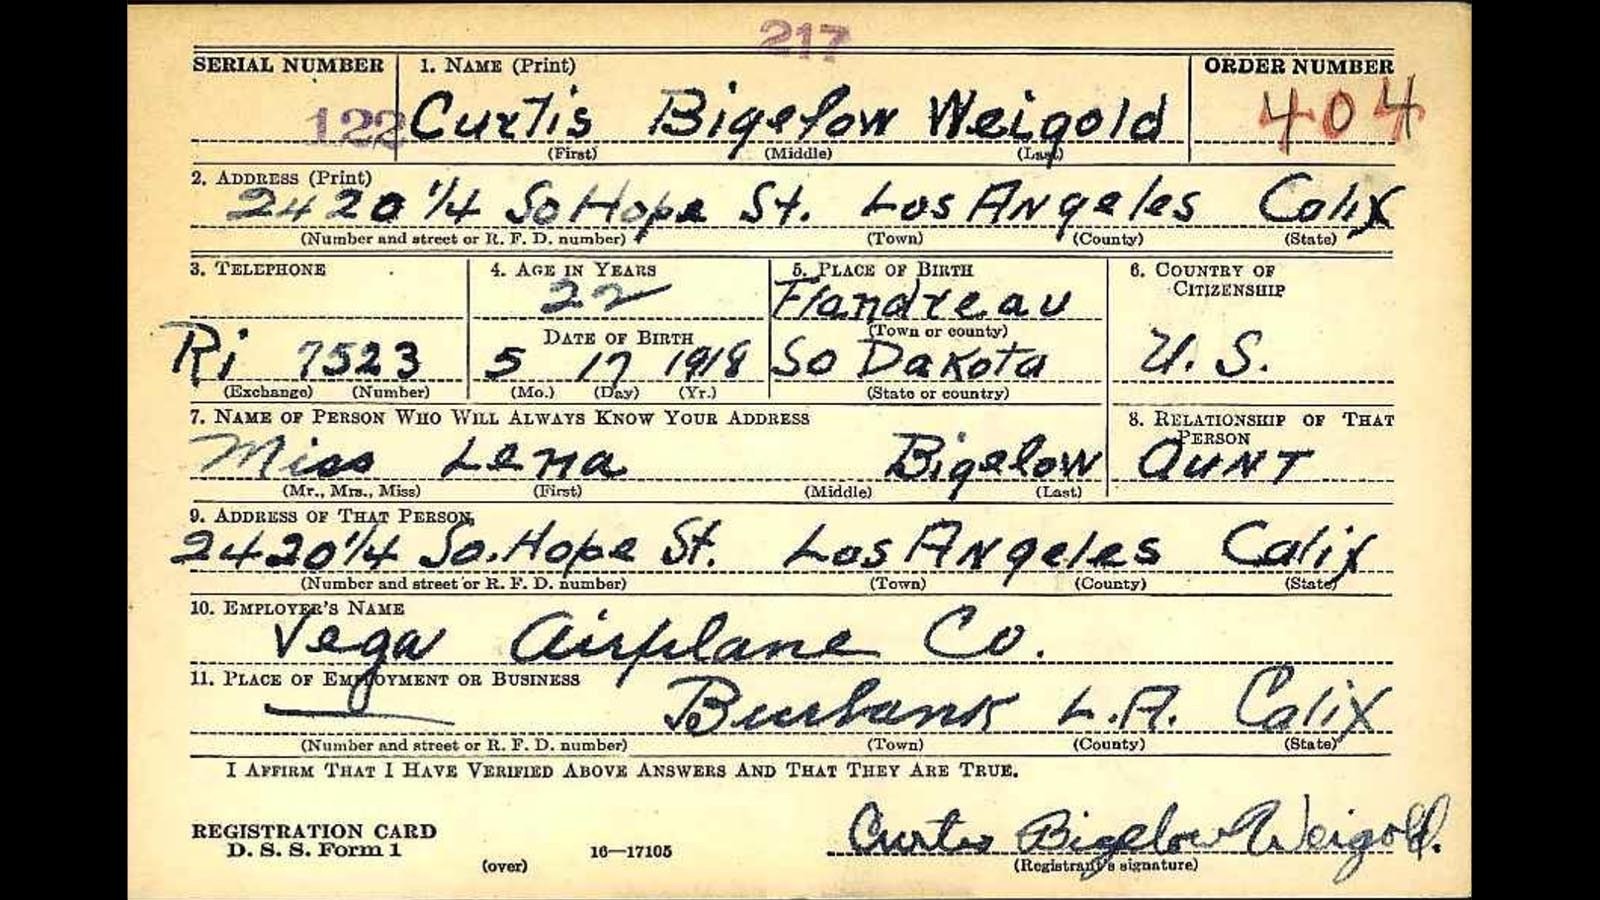 217
SERIAL NUMBER 1. NAME (Print) ORDER NUMBER
122 Curtis Bigelow Weigold 404
(First) (Middle) (Last)
2. ADDRESS (Print)
2420 1/4 So Hope St. Los Angeles Calif
(Number and street or R. F. D. number) (Town) (County) (State)
3. TELEPHONE 4. AGE IN YEARS 5. PLACE OF BIRTH 6. COUNTRY OF CITIZENSHIP
22 Flandreau
DATE OF BIRTH (Town or county)
Ri 7523 5 17 1918 So Dakota U. S.
(Exchange) (Number) (Mo.) (Day) (Yr.) (State or country)
7. NAME OF PERSON WHO WILL ALWAYS KNOW YOUR ADDRESS 8. RELATIONSHIP OF THAT PERSON
Miss Lena Bigelow Aunt
(Mr., Mrs., Miss) (First) (Middle) (Last)
9. ADDRESS OF THAT PERSON
2420 1/4 So. Hope St. Los Angeles Calif
(Number and street or R. F. D. number) (Town) (County) (State)
10. EMPLOYER'S NAME
Vega Airplane Co.
11. PLACE OF EMPLOYMENT OR BUSINESS
Burbank L.A. Calif
(Number and street or R. F. D. number) (Town) (County) (State)
I AFFIRM THAT I HAVE VERIFIED ABOVE ANSWERS AND THAT THEY ARE TRUE.
REGISTRATION CARD Curtis Bigelow Weigold.
D. S. S. Form 1 (over) 16—17105 (Registrant's signature)